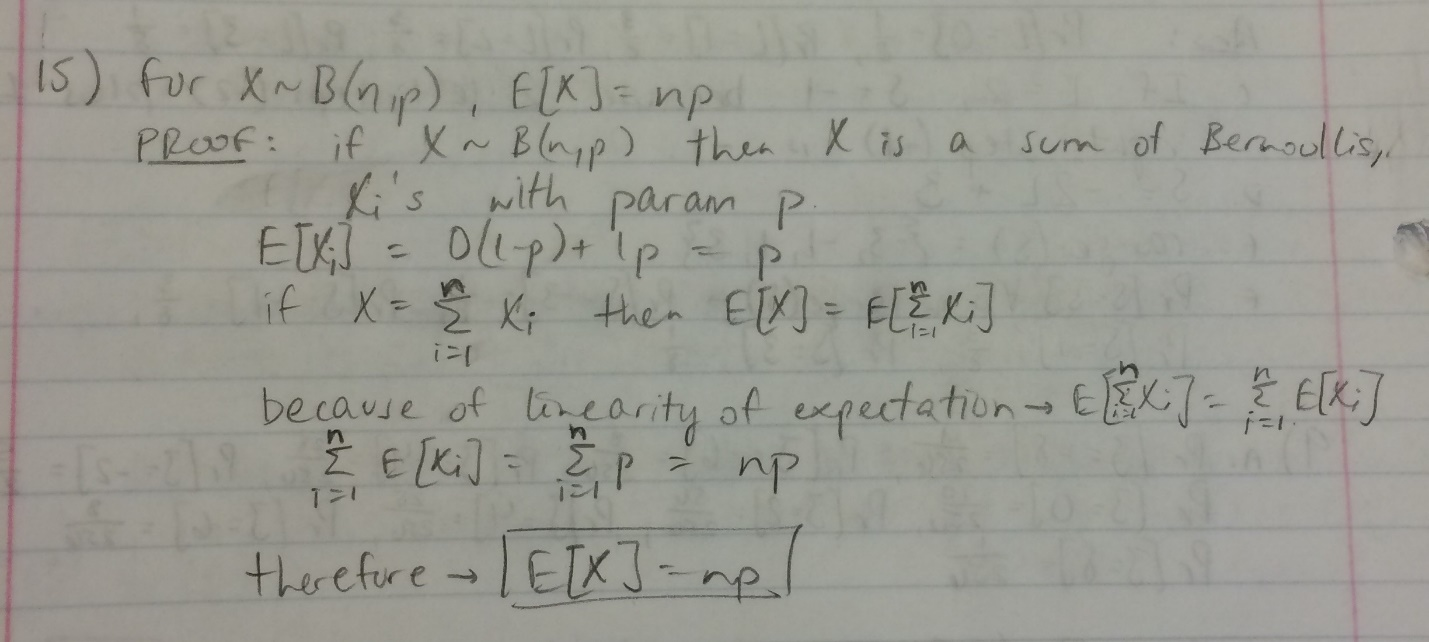 15) For X ~ B(n,p), E[X] = np
PROOF: if X ~ B(n,p) then X is a sum of Bernoullis,
Xi's with param p.
E[Xi] = 0(1-p) + 1p = p
if X = n∑i=1 Xi then E[X] = E[n∑i=1 Xi]
because of linearity of expectation → E[n∑i=1 Xi] = n∑i=1 E[Xi]
n∑i=1 E[Xi] = n∑i=1 p = np
therefore → E[X] = np